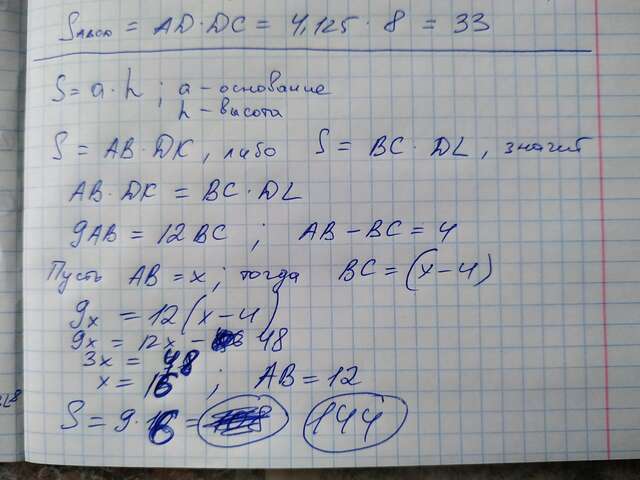 S ABCD = AD · DC = 4,125 · 8 = 33
S = a · h ; a - основание
h - высота
S = AB · DK, либо S = BC · DL, значит
AB · DK = BC · DL
9AB = 12BC ; AB - BC = 4
Пусть AB = x ; тогда BC = (x - 4)
9x = 12(x - 4)
9x = 12x - 48
3x = 48
x = 16 ; AB = 12
S = 9 · 16 = 144